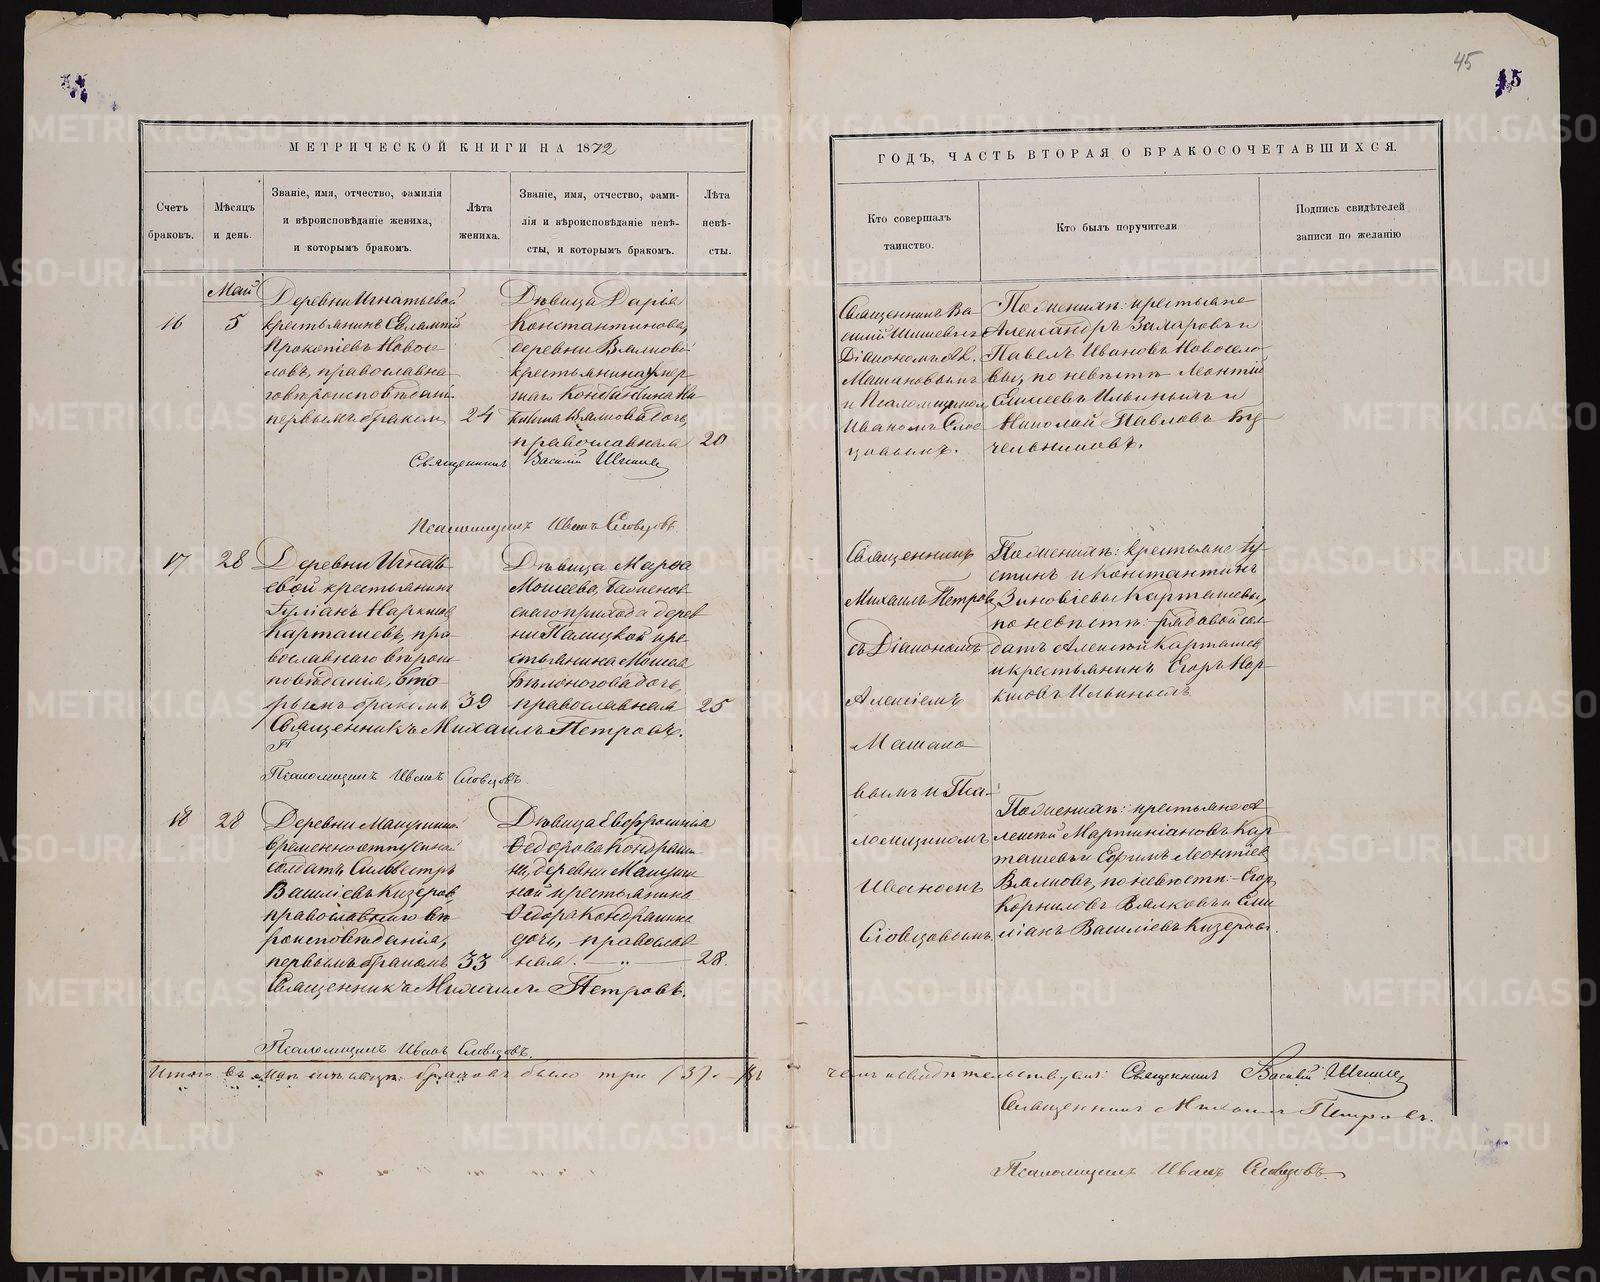 45
15
МЕТРИЧЕСКОЙ КНИГИ НА 1872
Счетъ браковъ.
Мѣсяцъ и день.
Званіе, имя, отчество, фамилія
и вѣроисповѣданіе жениха,
и которымъ бракомъ.
Лѣта жениха.
Званіе, имя, отчество, фами-
лія и вѣроисповѣданіе невѣ-
сты, и которымъ бракомъ.
Лѣта невѣ-
сты.
Май
16
5
Деревни Игнатьевой
крестьянинъ Евлампій
Прокопіевъ Новосе
ловъ, православна
го вѣроисповѣданія
первымъ бракомъ
24
Дѣвица Дарія
Константинова,
деревни Вялковой
крестьянина умер
шаго Константина Ни
китина Вялкова дочь,
православная
20
Священникъ Василій Шишевъ
Псаломщикъ Иванъ Словцовъ
17
28
Деревни Игнать
евой крестьянинъ
Іуліанъ Наркисов
Карташевъ, пра
вославнаго вѣрои
повѣданія, вто
рымъ бракомъ
39
Дѣвица Марѳа
Моисеева,
скаго прихода дерев
ни Палицкой кре
стьянина Моисея
Бѣлоногова дочь,
православная
25
Священникъ Михаилъ Петровъ.
Псаломщикъ Иванъ Словцовъ.
18
28
Деревни
временноотпускной
солдатъ Сильвестръ
Василіевъ Кизеровъ
православнаго вѣ
роисповѣданія,
первымъ бракомъ
33
Дѣвица Евфросинія
Ѳедорова Кондраши
на, деревни
ной крестьянина
Ѳедора Кондрашина
дочь, православ
ная. — „ —
28.
Священникъ Михаилъ Петровъ.
Псаломщикъ Иванъ Словцовъ.
Итого въ Маѣ мѣсяцѣ браковъ было три (3). — Въ
ГОДЪ, ЧАСТЬ ВТОРАЯ О БРАКОСОЧЕТАВШИХСЯ.
Кто совершалъ
таинство.
Кто былъ поручители
Подпись свидѣтелей
записи по желанію
Священникъ Ва
силій Шишевъ съ
Діакономъ Ал.
Машановымъ
и Псаломщиком
Иваномъ Слов
цовымъ.
По женихѣ: крестьяне
Александръ Захаровъ и
Павелъ Ивановъ Новосело
вы, по невѣстѣ Леонтій
Елисеевъ Ильиныхъ и
Николай Павловъ
чельниковъ.
Священникъ
Михаилъ Петровъ
съ Діакономъ
Алексіемъ
Машано
вымъ и Пса-
ломщикомъ
Иваномъ
Словцовымъ.
По женихѣ: крестьяне Іу
стинъ и Константинъ
Зиновіевы Карташевы,
по невѣстѣ: рядовой сол
датъ Алексѣй Карташев
и крестьянинъ Егоръ Кор
ниловъ Ильиныхъ
По женихѣ: крестьяне А
лексѣй Мартиніановъ Кар
ташевъ и Ефимъ Леонтіев
Вялковъ, по невѣстѣ: Егор
Корниловъ Вялковъ и Еми
ліанъ Василіевъ Кизеровъ.
чемъ и свидѣтельствуемъ: Священникъ Василій Шишевъ
Священникъ Михаилъ Петровъ.
Псаломщикъ Иванъ Словцовъ.
METRIKI.GASO-URAL.RU